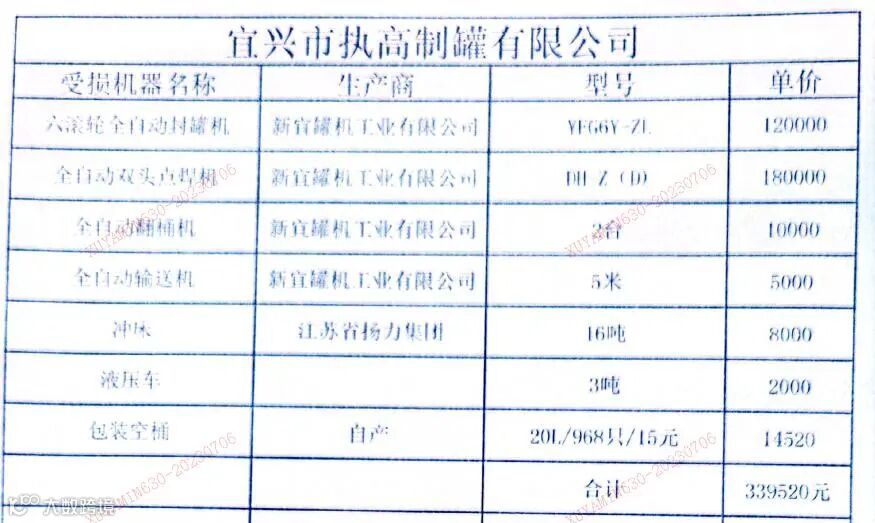 宜兴市执高制罐有限公司
受损机器名称 生产商 型号 单价
六滚轮全自动封罐机 新宜罐机工业有限公司 YFG6Y-ZL 120000
全自动双头点焊机 新宜罐机工业有限公司 DH-Z (D) 180000
全自动翻桶机 新宜罐机工业有限公司 2台 10000
全自动输送机 新宜罐机工业有限公司 5米 5000
冲床 江苏省扬力集团 16吨 8000
液压车 3吨 2000
包装空桶 自产 20L/968只/15元 14520
合计 339520元
XUYAMIN630-20230706
XUYAMIN630-20230706
XUYAMIN630-20230706
XUYAMIN630-20230706
大数跨境